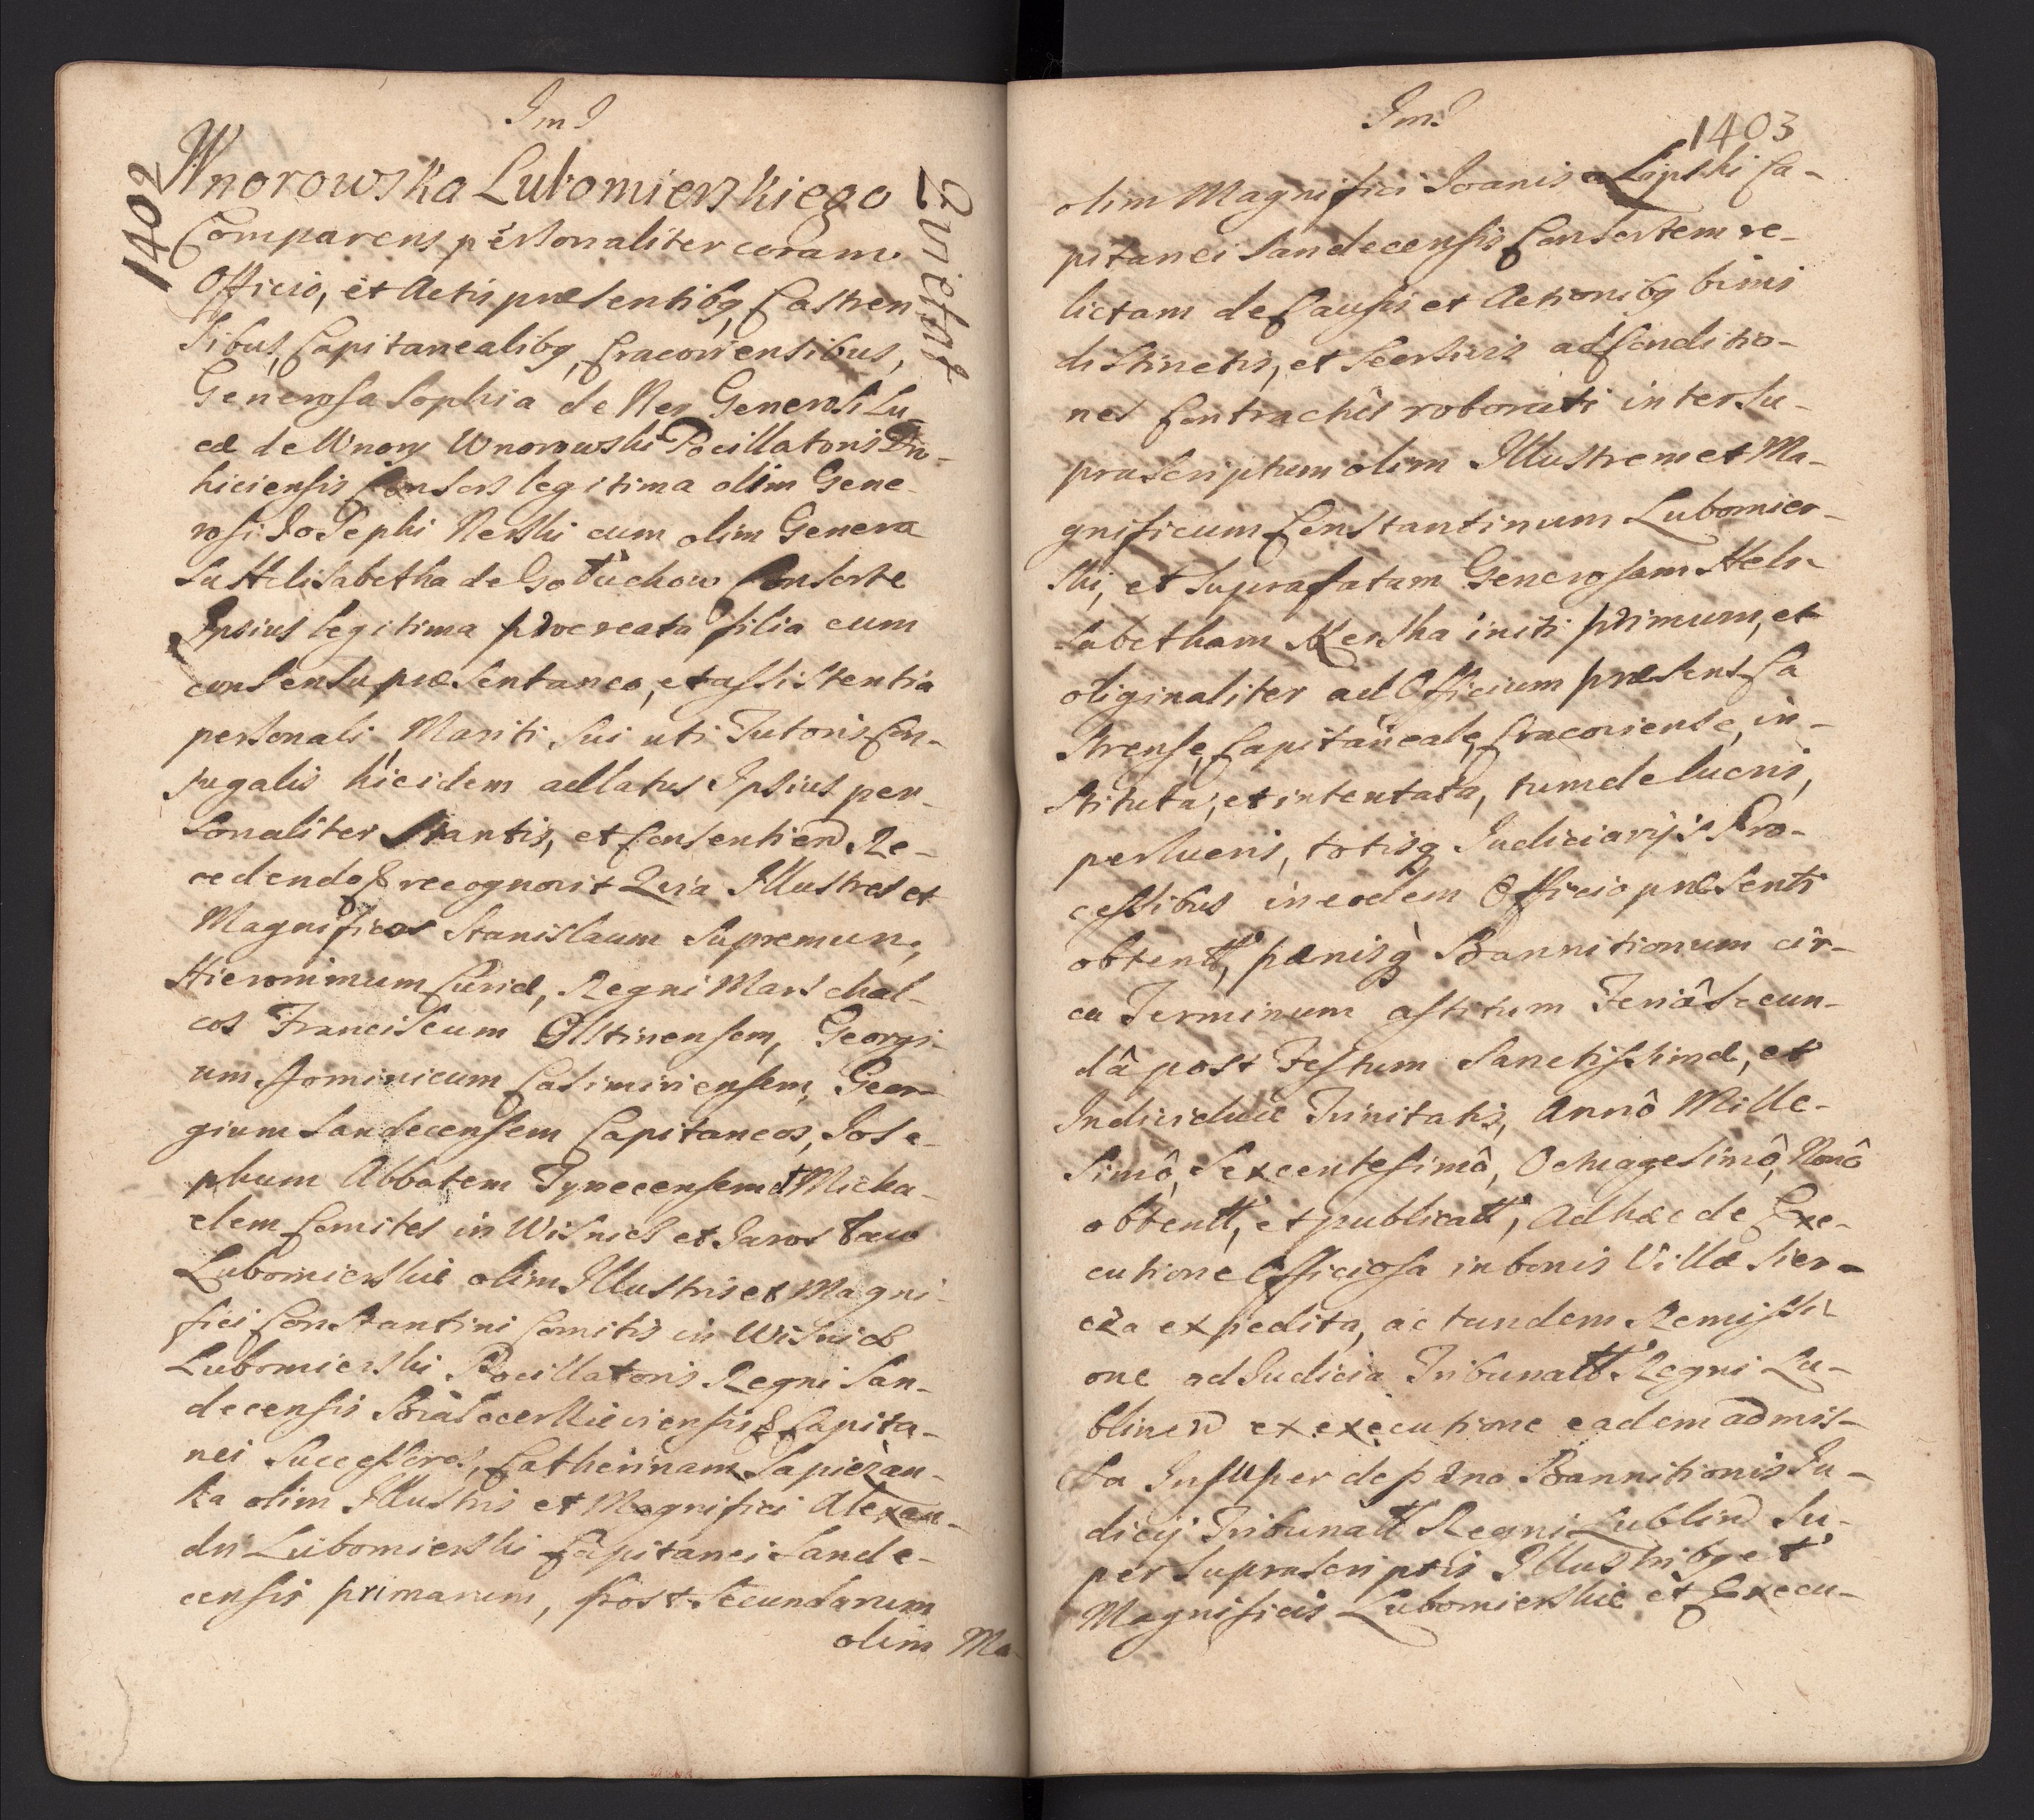 1402
ImJ
Wnorowska Lubomierskiego
Quietat
Comparens personaliter coram
Officio, et Actis præsentibq Castren
sibus, Capitanealibq Cracoviensibus,
Generosa Sophia de Ner Generosi Lu
cæ de Wnory Wnorowski Pocillatoris Dro-
hiciensis Consors legitima olim Gene
rosi Josephi Nerski cum olim Genero
sa Helisabetha de Gotuchow Consorte
Ipsius legitima procreata filia cum
consensu præsentaneo, et assistentia
personali Mariti sui uti Tutoris Con-
jugalis hicidem ad latus Ipsius per
sonaliter stantis, et Consentien Re-
cedendo & recognovit Quia Illustres et
Magnificos Stanislaum Supremum,
Hieronimum Curiæ, Regni Marschal-
cos Franciscum Olstinensem, Georgi-
um Dominicum Casimiriensem, Geor
gium Sandecensem Capitaneos, Jose-
phum Abbatem Tynecensem et Micha-
elem Comites in Wisnicz et Jarosław
Lubomierskie olim Illustris et Magni
fici Constantini Comitis in Wisnicz
Lubomierski Pocillatoris Regni San-
decensis & Capita-
nei Successores, Catherinam Sapiezan-
ka olim Illustris et Magnifici Alexan-
dri Lubomierski Capitanei Sande-
censis primarum, post secundarum
olim Ma-
ImJ
1403
olim Magnifici Joanis a Lipski Ca-
pitanei Sandecensis Consortem re-
lictam de Causis et Actionibq binis
distinctis, et seorsivis ad Conditio-
nes Contractûs roborati inter su-
prascriptum olim Illustrem et Ma-
gnificum Constantinum Lubomier-
ski, et suprafatam Generosam Heli-
sabetham Nerska initi primum, et
originaliter ad Officium præsens Ca
strense, Capitaneale, Cracoviense, in-
stituta, et intentata, tum de lucris,
perlucris, totisq Judiciarijs Pro-
cessibus in eodem Officio præsenti
obtentt, pænisq Bannitionum cir-
ca Terminum astitum Feriâ Secun-
dâ post Festum Sanctissimæ, et
Individuæ Trinitatis, Annô Mille-
simô, Sexcentesimô, Octuagesimô, Nonô
obtentt, et publicatt, Adhæc de Exe-
cutione Officiosa in bonis Villæ Sier-
cza expedita, ac tandem Remissi-
one ad Judicia Tribunatt Regni Lu-
blinen ex executione eadem admis-
sa Insuper de pæna Bannitionis Ju-
dicij Tribunatt Regni Lublin Su-
per suprascriptis Illustribq et
Magnificis Lubomierskie et Execu-